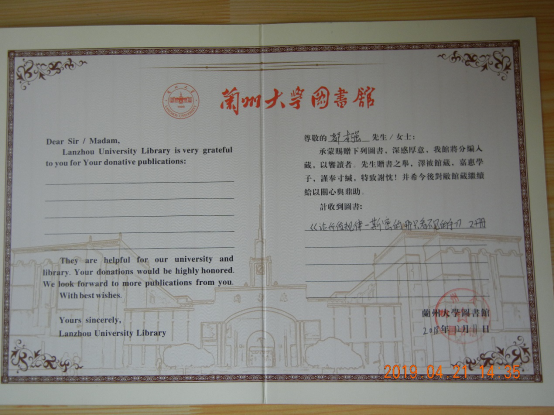 蘭州大学圖書館
Dear Sir / Madam,
Lanzhou University Library is very grateful
to you for Your donative publications:
They are helpful for our university and
library. Your donations would be highly honored.
We look forward to more publications from you.
With best wishes.
Yours sincerely,
Lanzhou University Library
尊敬的 先生/女士:
承蒙賜贈下列圖書,深感厚意,我館將分编入
藏,以饗讀者。先生贈書之舉,澤被館藏,嘉惠學
子,謹奉寸緘,特致謝忱!并希今後對敝館藏繼續
給以關心與幫助。
計收到圖書:
2册
蘭州大學圖書館
年 月 日
2019.04.21 14:35